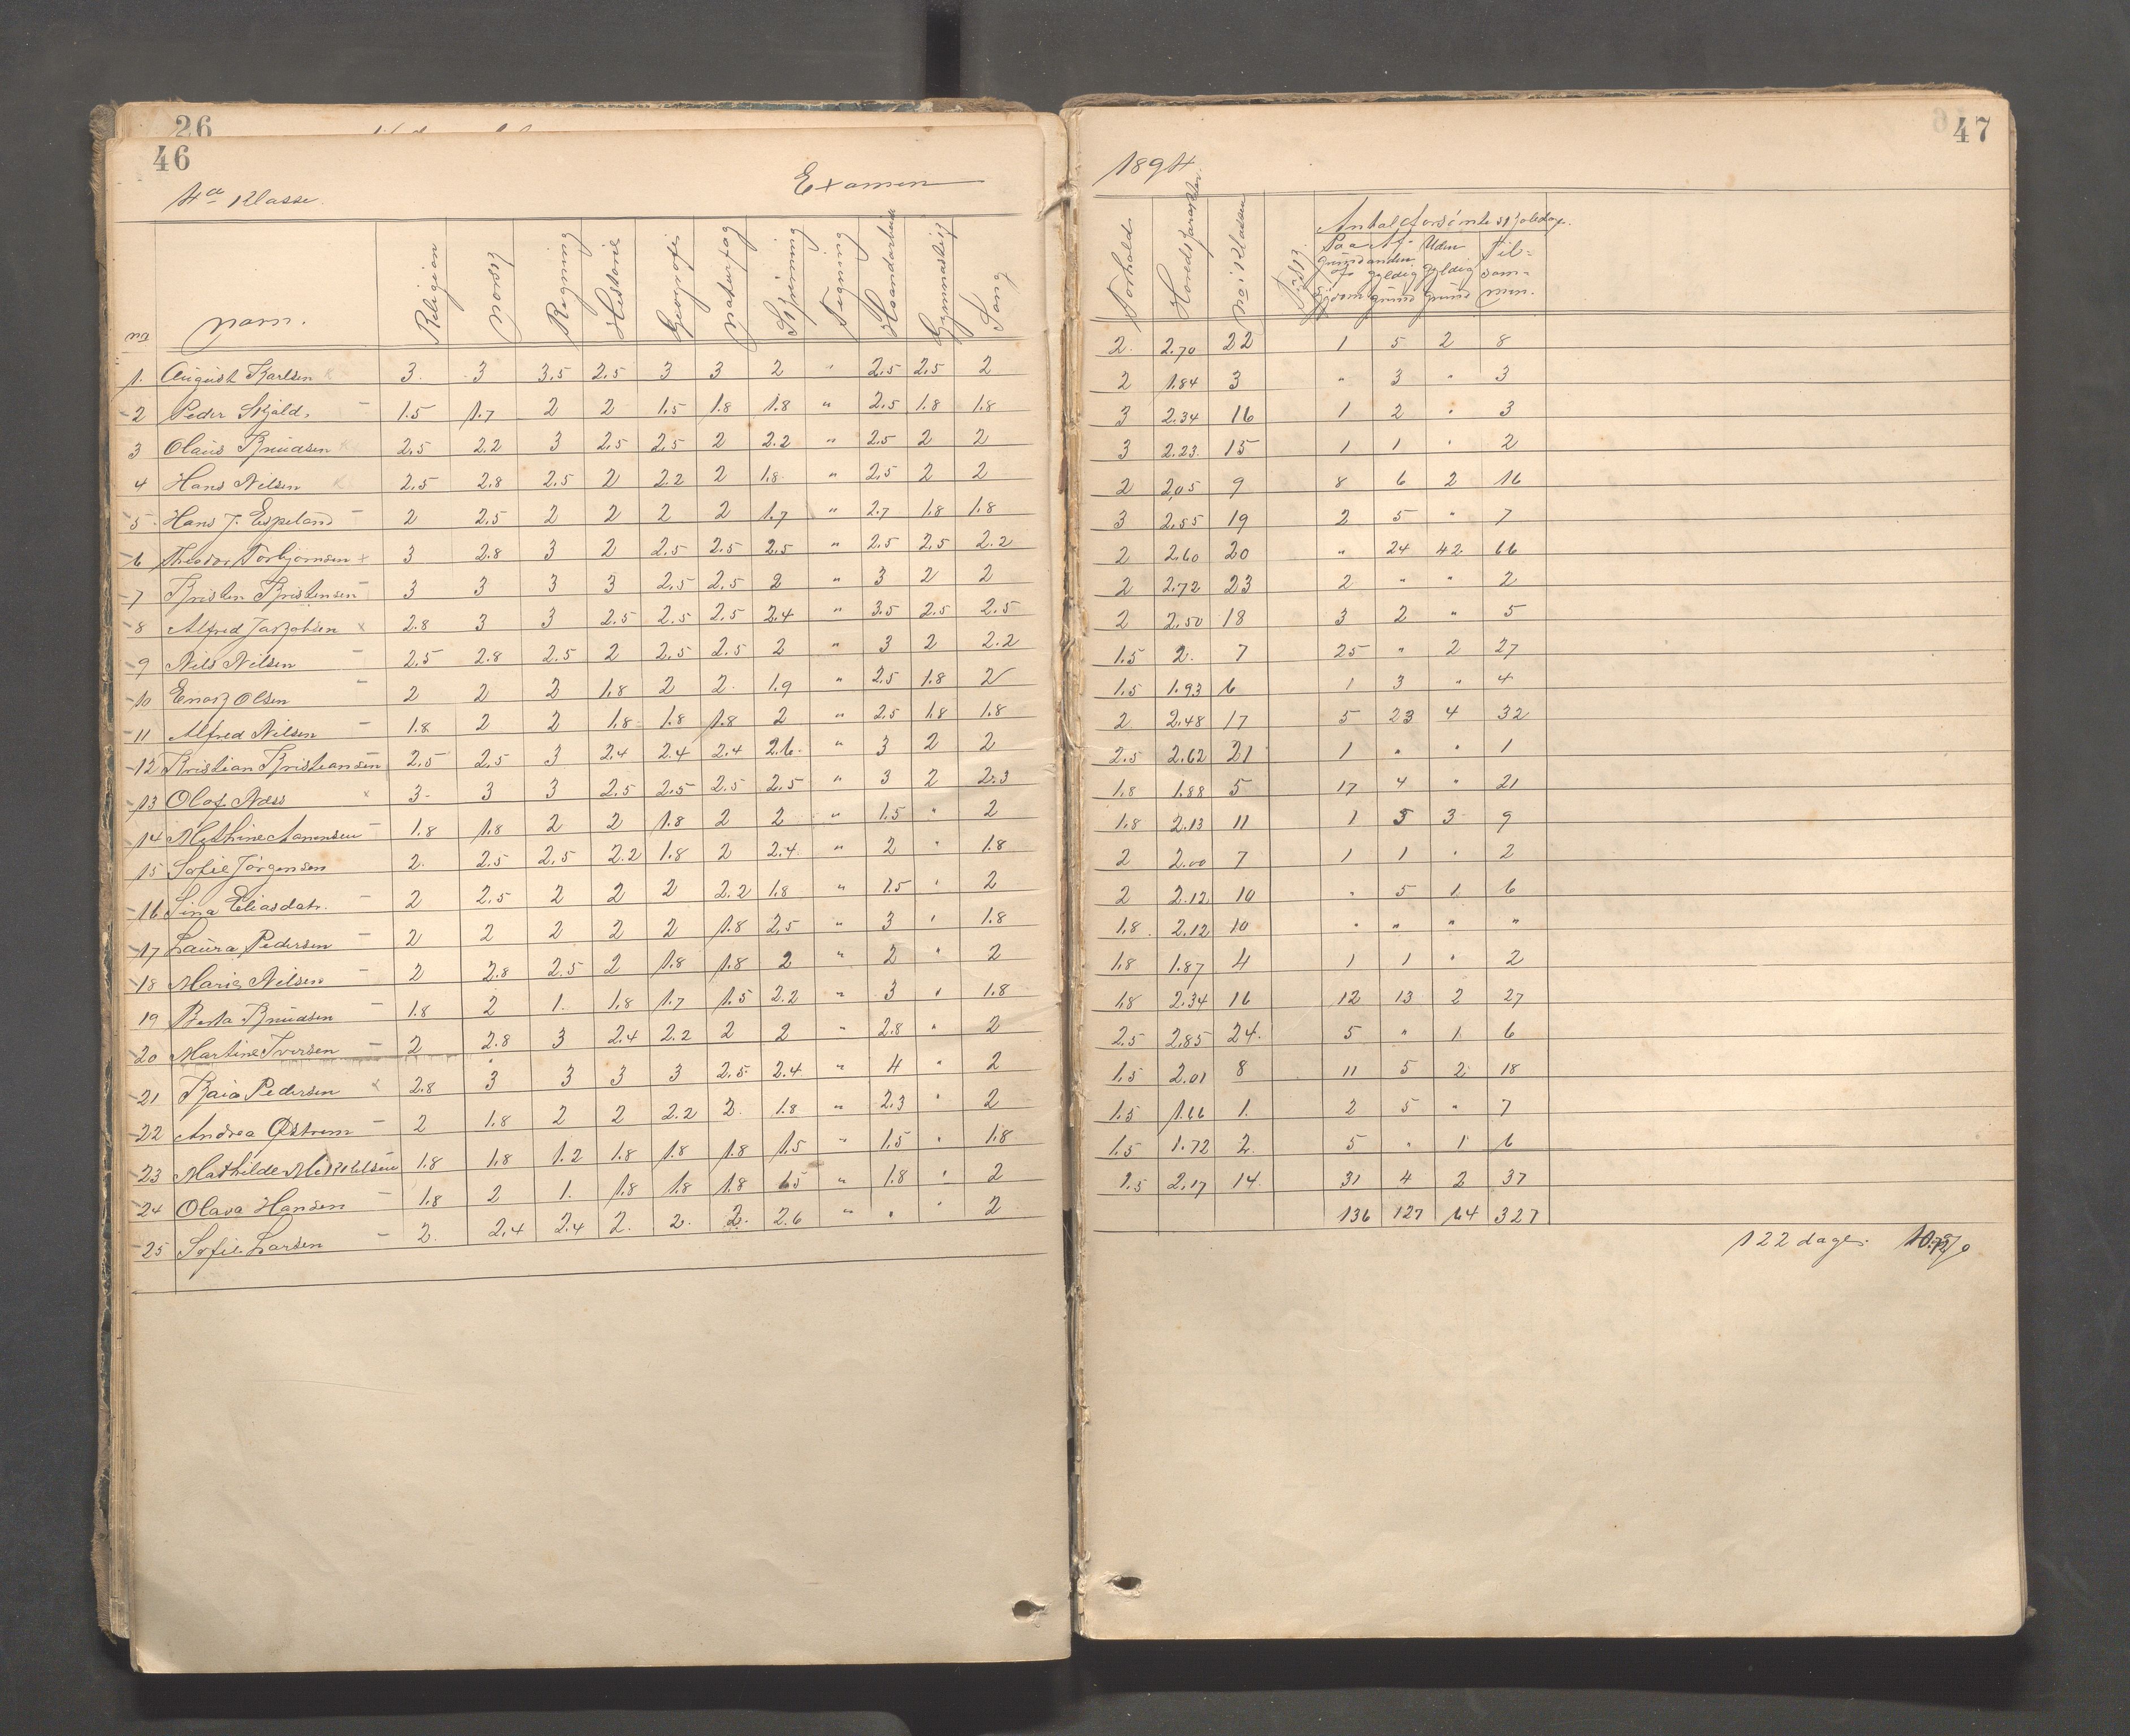 26
46
4de Klasse.
Examen
No Navn. Religion Norsk Regning Historie Geografi Naturfag Skrivning Tegning Haandarbeide Gymnastik Sang
1. August Karlsen 3. 3 3,5 2,5 3 3 2 " 2,5 2,5 2
2 Peder Skjold. 1.5 1.7 2 2 1.5 1.8 1.8 " 2.5 1.8 1.8
3 Olaus Knudsen 2,5 2.2 3 2,5 2,5 2 2.2 " 2.5 2 2
4 Hans Nilsen 2,5 2.8 2,5 2 2.2 2 1.8 " 2,5 2 2
5 Hans J. Espeland 2 2.5 2 2 2 2 1.7 " 2.7 1.8 1.8
6 Theodor Torbjørnsen 3 2.8 3 2 2,5 2.5 2,5 " 2.5 2,5 2.2
7 Kristen Kristensen 3 3 3 3 2.5 2.5 2 " 3 2 2
8 Alfred Jakobsen 2.8 3 3 2.5 2.5 2,5 2.4 " 3.5 2.5 2.5
9 Nils Nilsen 2.5 2.8 2.5 2 2,5 2.5 2 " 3 2 2.2
10 Enok Olsen 2 2 2 1,8 2 2. 1.9 " 2.5 1.8 2
11 Alfred Nilsen 1.8 2 2 1.8 1.8 1.8 2 " 2.5 1.8 1.8
12 Kristian Kristiansen 2,5 2,5 3 2.4 2.4 2.4 2.6. " 3 2 2
13 Olaf Næss 3 3 3 2.5 2.5 2.5 2,5 " 3 2 2.3
14 Methine Aanensen 1.8 1.8 2 2 1.8 2 2 " 1.5 " 2
15 Sofie Jörgensen 2. 2.5 2,5 2.2 1.8 2 2.4. " 2 " 1.8
16 Sina Eliasdatr. 2 2,5 2 2 2 2.2 1.8 " 1.5 " 2
17 Laura Pedersen 2 2 2 2 2 1.8 2,5 " 3 " 1.8
18 Marie Nilsen 2 2.8 2.5 2 1.8 1.8 2 " 2 " 2
19 Berta Knudsen 1.8 2 1. 1,8 1.7 1.5 2.2 " 3 " 1.8
20 Martine Iversen 2 2.8 3 2.4 2.2 2 2 " 2.8 " 2
21 Kaia Pedersen 2.8 3 3 3 3 2.5 2.4 " 4 " 2
22 Andrea Østrem 2 1.8 2 2 2.2 2. 1.8 " 2.3 " 2
23 Mathilde Mikkelsen 1.8 1.8 1.2 1.8 1.8 1.8 1.5 " 1.5 " 1.8
24 Olava Hansen 1.8 2 1. 1.8 1.8 1.8 " 1.8 " 2
25 Sofie Larsen 2. 2.4 2.4 2. 2. 2. 2.6 " " " 2
47
1894
Forhold. Hovedkarakter. No i Klassen Flid. Antal forsömte skoledage.
Paa Af Uden Til-
grund anden
af gyldig gyldig sam-
sygdom grund grund men.
2. 2.70 22 1 5 2 8
2 1.84 3 " 3 " 3
3 2.34 16 1 2 " 3
3 2.23. 15 1 1 " 2
2 2,05 9 8 6 2 16
3 2,55 19 2 5 " 7
2 2.60 20 " 24 42 66
2 2.72 23 2 " " 2
2 2.50 18 3 2 " 5
1.5 2. 7 25 " 2 27
1.5 1.93 6 1 3 " 4
2 2.48 17 5 23 4 32
2.5 2.62 21 1 " " 1
1.8 1.88 5 17 4 " 21
1.8 2.13 11 1 5 3 9
2 2.00 7 1 1 " 2
2 2.12 10 " 5 1 6
1.8. 2.12 10 " " " "
1.8 1.87 4 1 1 " 2
1.8 2.34 16 12 13 2 27
2.5 2.85 24. 5 " 1 6
1.5 2.01 8 11 5 2 18
1.5 1.66 1. 2 5 " 7
1.5 1.72 2. 5 " 1 6
1.5 2.17 14. 31 4 2 37
136 127 64 327
122 dage.